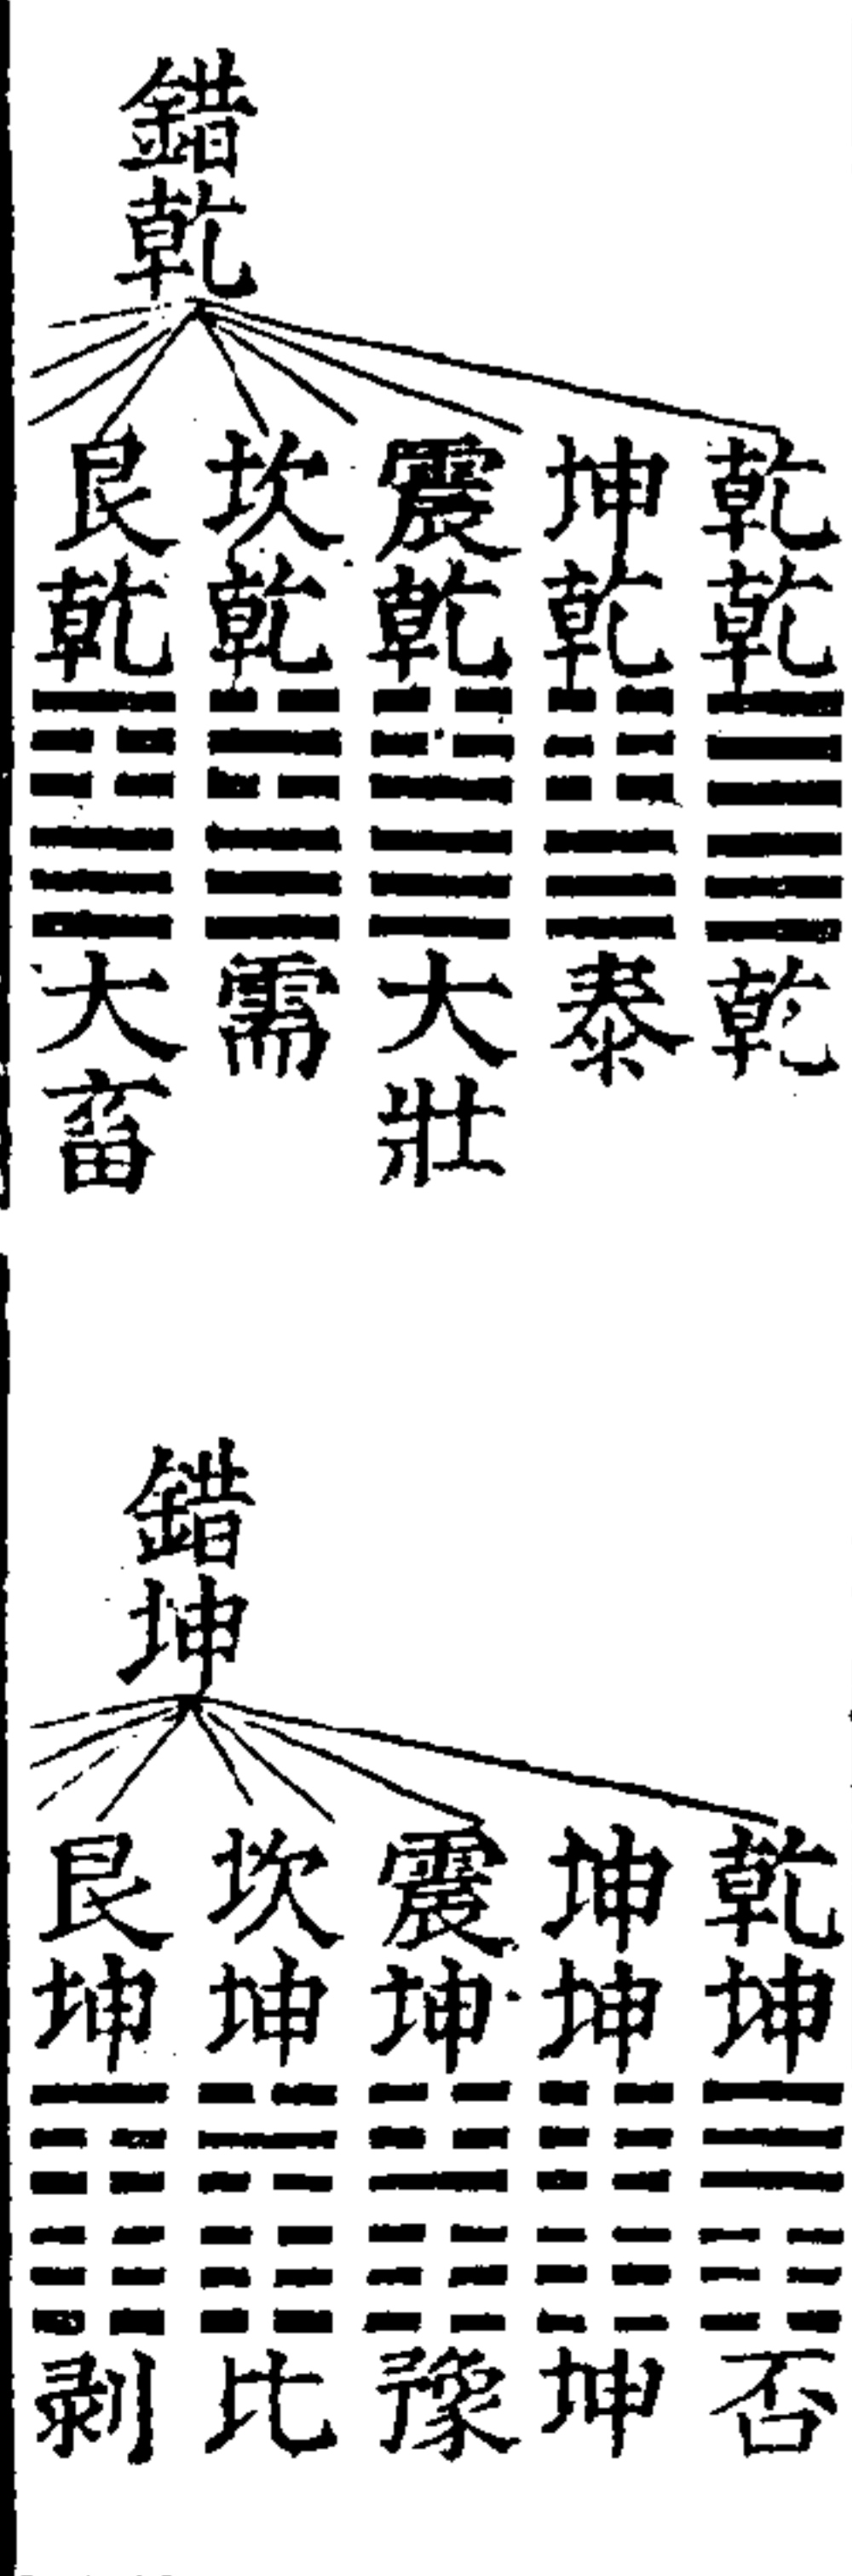 錯乾
乾乾
乾
坤乾
泰
震乾
大壯
坎乾
需
艮乾
大畜
錯坤
乾坤
否
坤坤
坤
震坤
豫
坎坤
比
艮坤
剥